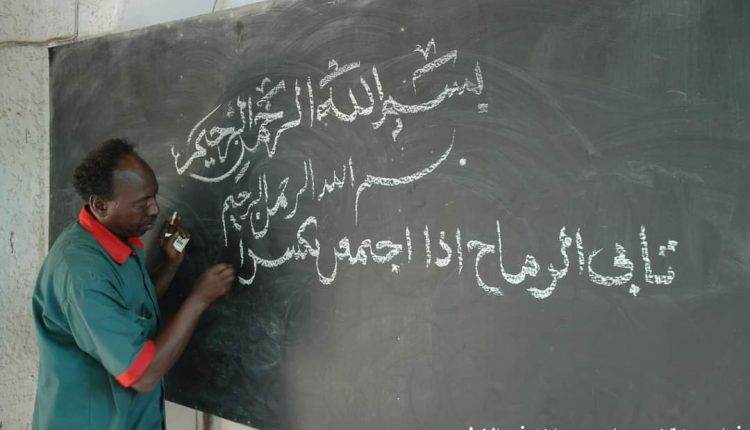 بسم الله الرحمن الرحيم
بسم الله الرحمن الرحيم
تابى الرماح اذا اجتمعن تكسرا